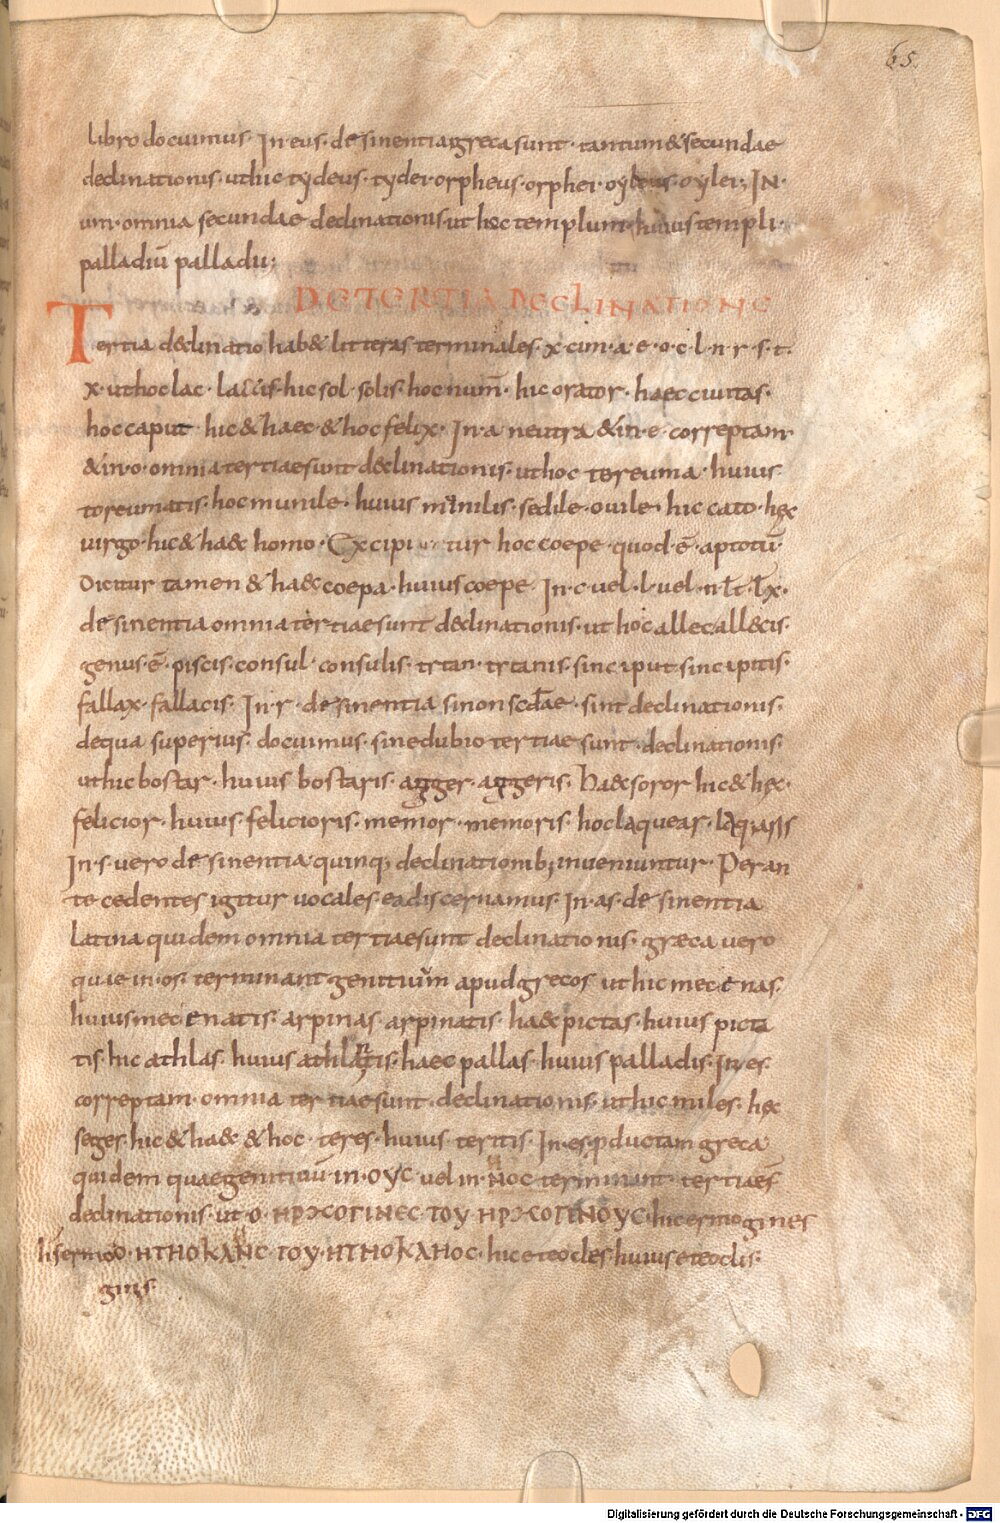 65.
libro docuimus. In eus. desinentia greca sunt. tantum & secundae
declinationis. ut hic tydeus. tydei. orpheus. orphei. oyleus. oylei; IN.
um. omnia secundae declinationis. ut hoc templum. huius templi.
palladiū palladii;
DE TERTIA DECLINATIONE
Tertia declinatio hab& litteras terminales. x. cim. a. e. o. c. l. n. r. s. t.
x. ut hoc lac. lactis. hic sol. solis. hoc num̄. hic orator. haec ciuitas.
hoc caput. hic & haec. & hoc felix. In. a. neutra & in. e. correptam
& in. o. omnia tertiae sunt declinationis. ut hoc toreuma. huius
toreumatis. hoc munile. huius munilis. sedile. ouile. hic cato. hęc
uirgo. hic & ha&c homo. Excipitur hoc coepe. quod. ē. aptotū.
Dicitur tamen & ha&c coepa. huius coepe. In. c. uel. l. uel. n. ł t. ł x.
desinentia omnia tertiae sunt declinationis. ut hoc allec allecis.
genus. ē. piscis. consul. consulis. titan. titanis. sinciput sincipitis.
fallax. fallacis. In. r. desinentia si non scdae. sint declinationis.
de qua superius. docuimus. sine dubio tertiae sunt. declinationis.
ut hic bostar. huius bostaris. agger. aggeris. ha&c soror hic & hęc.
felicior. huius. felicioris. memor. memoris. hoc laquear. laq;aris
In. s. uero desinentia. quinq; declinationib; inueniuntur. Per an
tecedentes igitur uocales. ea discernamus. In. as. desinentia
latina quidem omnia tertiae sunt declinationis. greca uero
quae in. os. terminant genitiuum apud grecos ut hic mecenas.
huius mecenatis. arpinas. arpinatis. ha&c pictas. huius picta
tis. hic athlas. huius athlantis. haec pallas. huius palladis. In. es.
correptam. omnia tertiae sunt. declinationis. ut hic miles. hęc
seges. hic & ha&c & hoc. teres. huius teritis. In. es. ꝓductam greca
quidem quae genitiuū. in. ΟΥС uel in. ΗΟС terminant. tertiae s̄
declinationis. ut. ο. ΗΡΜΟΓΙΝΕС ΤΟΥ ΗΡΜΟΓΙΝΟΥС. hic ermogines
h' ermo Ο. ΗΤΗΟΚΛΗС ΤΟΥ. ΗΤΗΟΚΛΗΟС. hic eteocles huius eteoclis.
ginis.
Digitalisierung gefördert durch die Deutsche Forschungsgemeinschaft - DFG